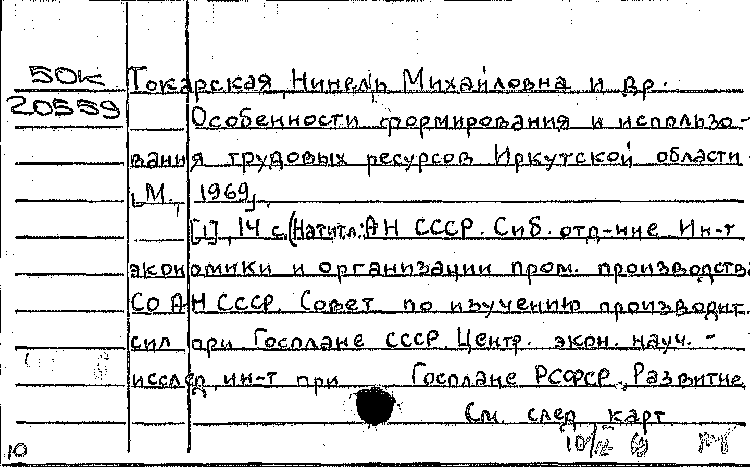 50К
20559
Токарская, Нинель Михайловна и др.
Особенности формирования и использо-
вания трудовых ресурсов Иркутской области
[М., 1969].
[1], 14 с. (Натитл.: АН СССР. Сиб. отд-ние. Ин-т
экономики и организации пром. производства
СО АН СССР. Совет по изучению производит.
сил при Госплане СССР. Центр. экон. науч.-
исслед. ин-т при Госплане РСФСР. Развитие
См. след. карт
10